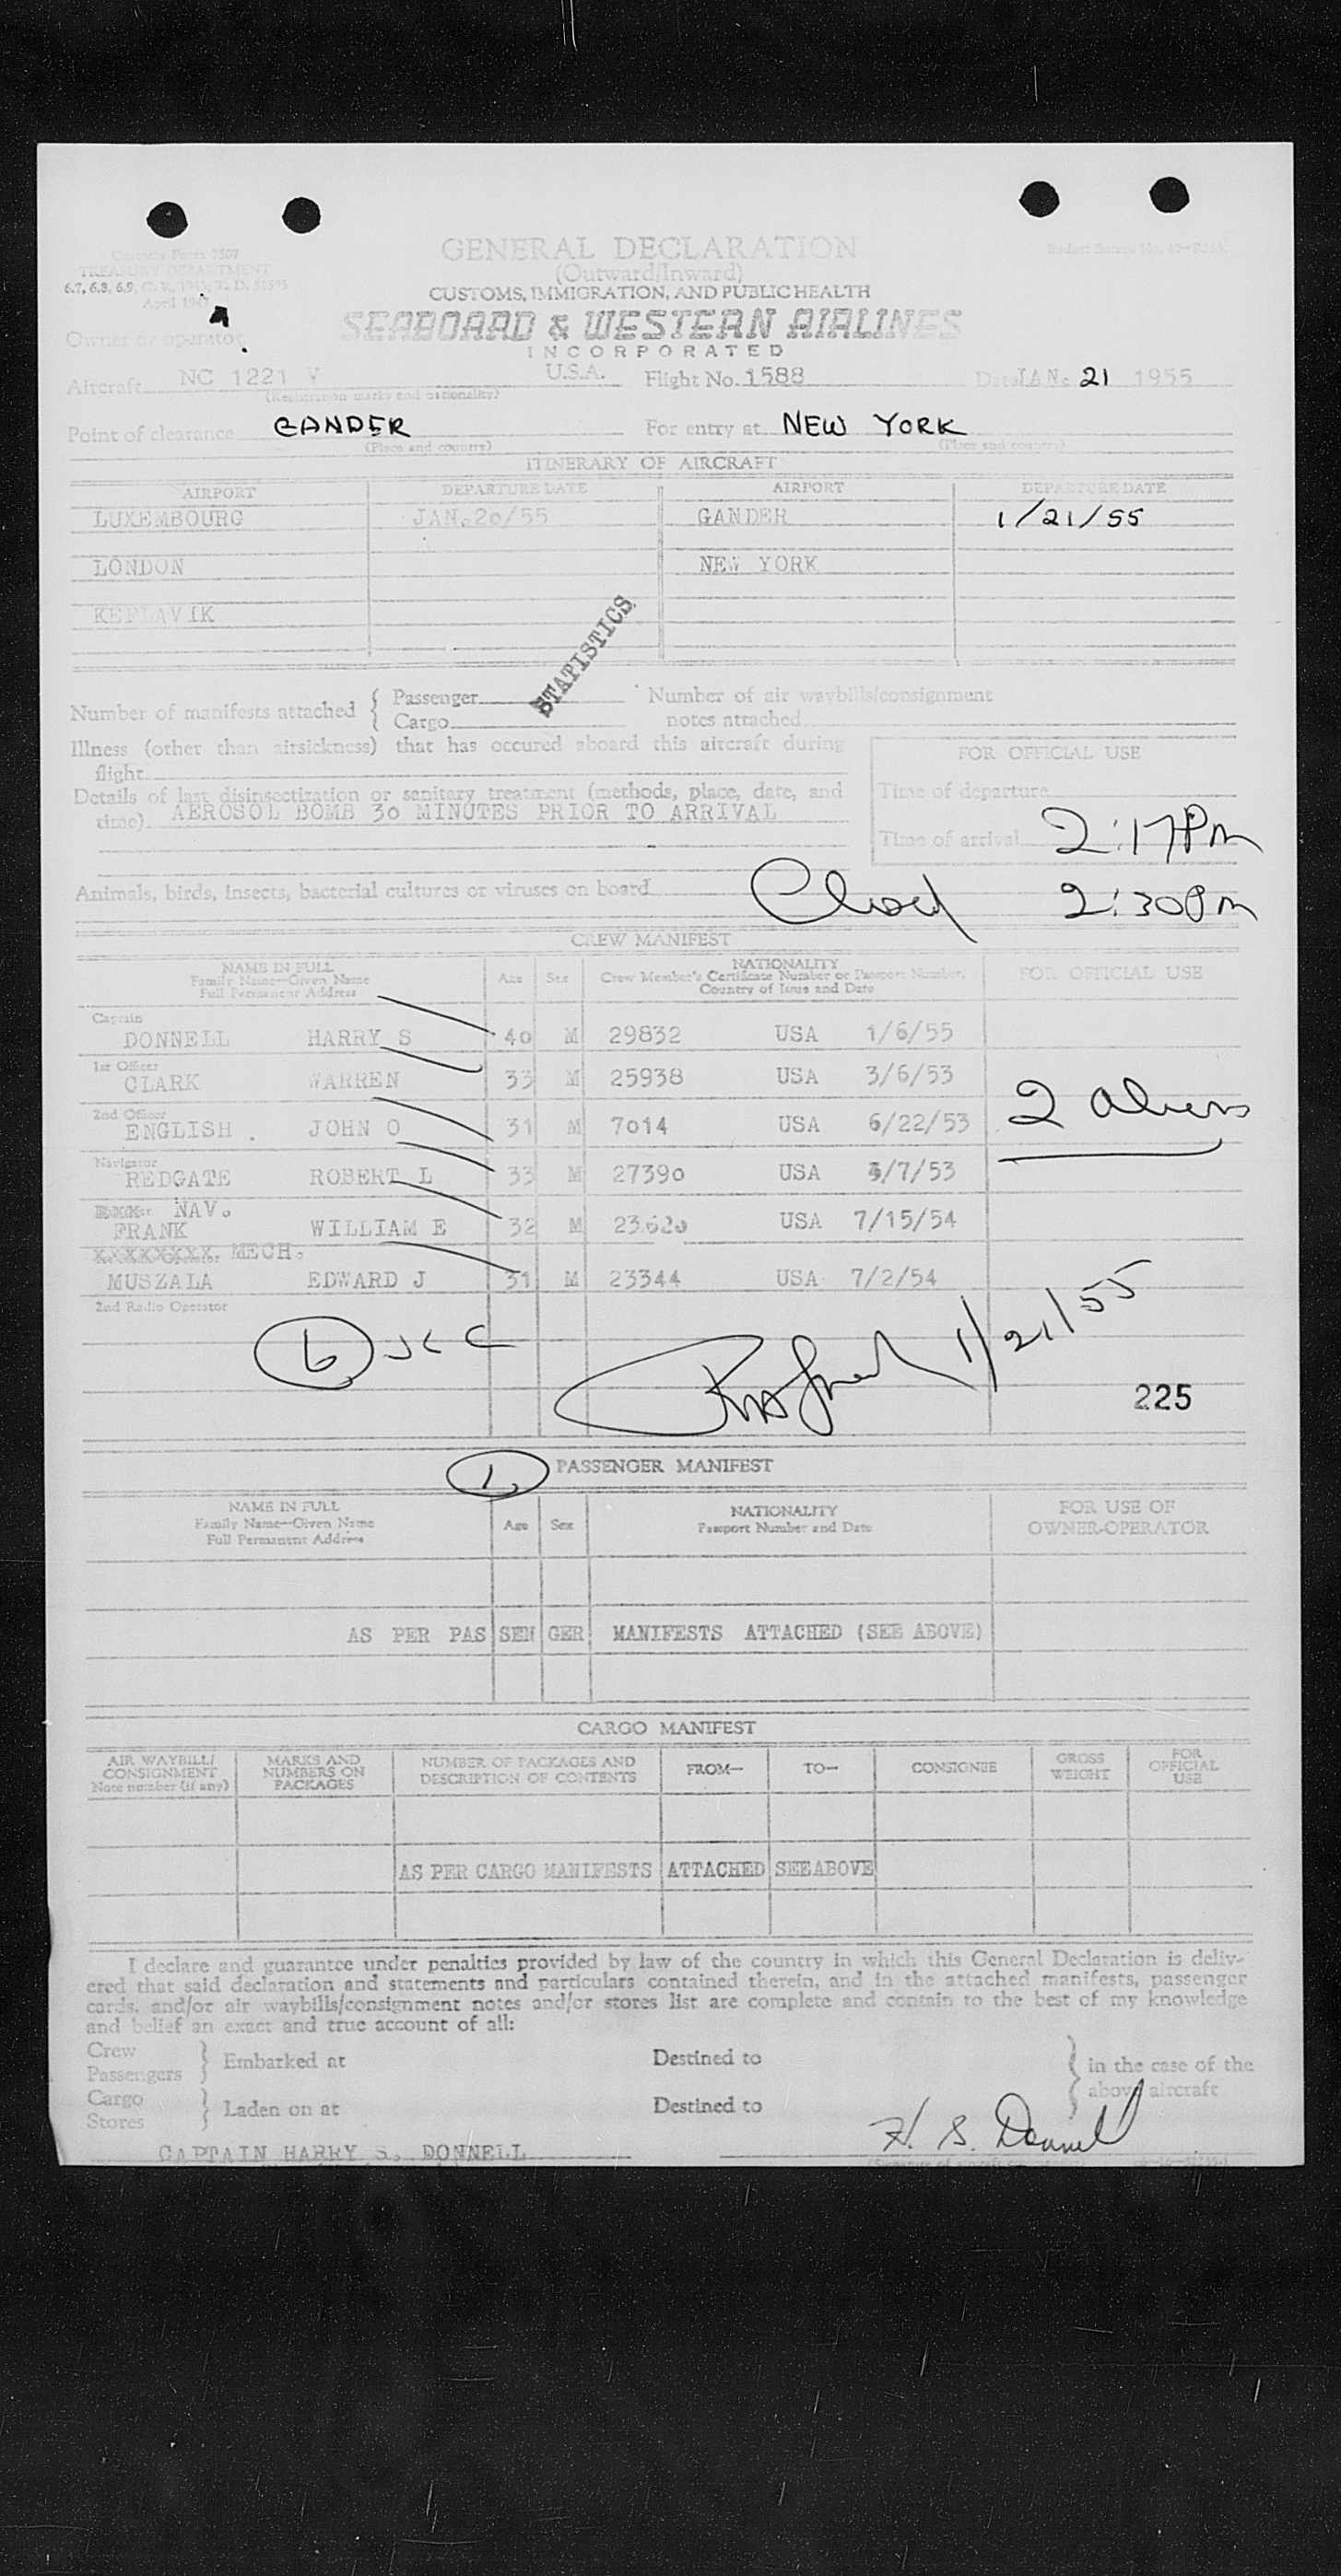 GENERAL DECLARATION
(Outward/Inward)
CUSTOMS, IMMIGRATION, AND PUBLIC HEALTH
Customs Form 7507
TREASURY DEPARTMENT
6.7, 6.8, 6.9,
April 1947
SEABOARD & WESTERN AIRLINES
INCORPORATED
Owner or operator
Aircraft NC 1221 V U.S.A. Flight No. 1588 Date JAN. 21 1955
(Registration marks and nationality)
Point of clearance GANDER For entry at NEW YORK
(Place and country) (Place and country)
ITINERARY OF AIRCRAFT
AIRPORT DEPARTURE DATE AIRPORT DEPARTURE DATE
LUXEMBOURG JAN.20/55 GANDER 1/21/55
LONDON NEW YORK
KEFLAVIK
STATISTICS
Number of manifests attached { Passenger Number of air waybills/consignment
Cargo notes attached
Illness (other than airsickness) that has occured aboard this aircraft during
flight
FOR OFFICIAL USE
Details of last disinsectization or sanitary treatment (methods, place, date, and
time) AEROSOL BOMB 30 MINUTES PRIOR TO ARRIVAL
Time of departure
Time of arrival 2:17Pm
Animals, birds, insects, bacterial cultures or viruses on board
2:30Pm
CREW MANIFEST
NAME IN FULL
Family Name—Given Name
Full Permanent Address
Age Sex
NATIONALITY
Crew Member's Certificate Number or Passport Number,
Country of Issue and Date
FOR OFFICIAL USE
Captain
DONNELL HARRY S 40 M 29832 USA 1/6/55
1st Officer
CLARK WARREN 33 M 25938 USA 3/6/53
2nd Officer
ENGLISH . JOHN O 31 M 7014 USA 6/22/53
2 Aliens
Navigator
REDGATE ROBERT L 33 M 27390 USA /7/53
NAV.
FRANK WILLIAM E 32 M 23620 USA 7/15/54
XXXXXXXX MECH.
MUSZALA EDWARD J 31 M 23344 USA 7/2/54
2nd Radio Operator
6
1/21/55
225
1 PASSENGER MANIFEST
NAME IN FULL
Family Name—Given Name
Full Permanent Address
Age Sex
NATIONALITY
Passport Number and Date
FOR USE OF
OWNER-OPERATOR
AS PER PAS SEN GER MANIFESTS ATTACHED (SEE ABOVE)
CARGO MANIFEST
AIR WAYBILL/
CONSIGNMENT
Note number (if any)
MARKS AND
NUMBERS ON
PACKAGES
NUMBER OF PACKAGES AND
DESCRIPTION OF CONTENTS
FROM— TO— CONSIGNEE
GROSS
WEIGHT
FOR
OFFICIAL
USE
AS PER CARGO MANIFESTS ATTACHED SEE ABOVE
I declare and guarantee under penalties provided by law of the country in which this General Declaration is deliv-
ered that said declaration and statements and particulars contained therein, and in the attached manifests, passenger
cards, and/or air waybills/consignment notes and/or stores list are complete and contain to the best of my knowledge
and belief an exact and true account of all:
Crew
Passengers } Embarked at Destined to } in the case of the
above aircraft
Cargo
Stores } Laden on at Destined to
CAPTAIN HARRY S. DONNELL H. S. Donnell